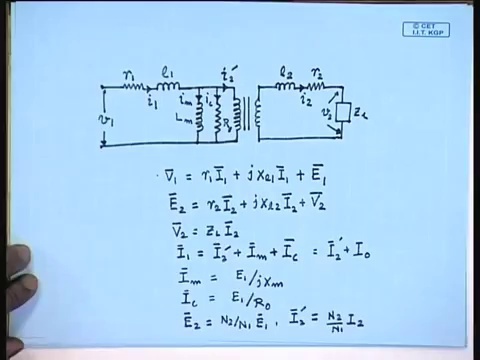 © CET
I.I.T. KGP
r₁ l₁ i₂' l₂ r₂
i₁ i_m i_c i₂
v₁ L_m R₀ v₂ Z_L
V̄₁ = r₁Ī₁ + jx_l₁Ī₁ + Ē₁
Ē₂ = r₂Ī₂ + jx_l₂Ī₂ + V̄₂
V̄₂ = Z_L Ī₂
Ī₁ = Ī₂' + Ī_m + Ī_c = Ī₂' + I₀
Ī_m = E₁/jx_m
Ī_c = E₁/R₀
Ē₂ = N₂/N₁ Ē₁, Ī₂' = N₂/N₁ I₂